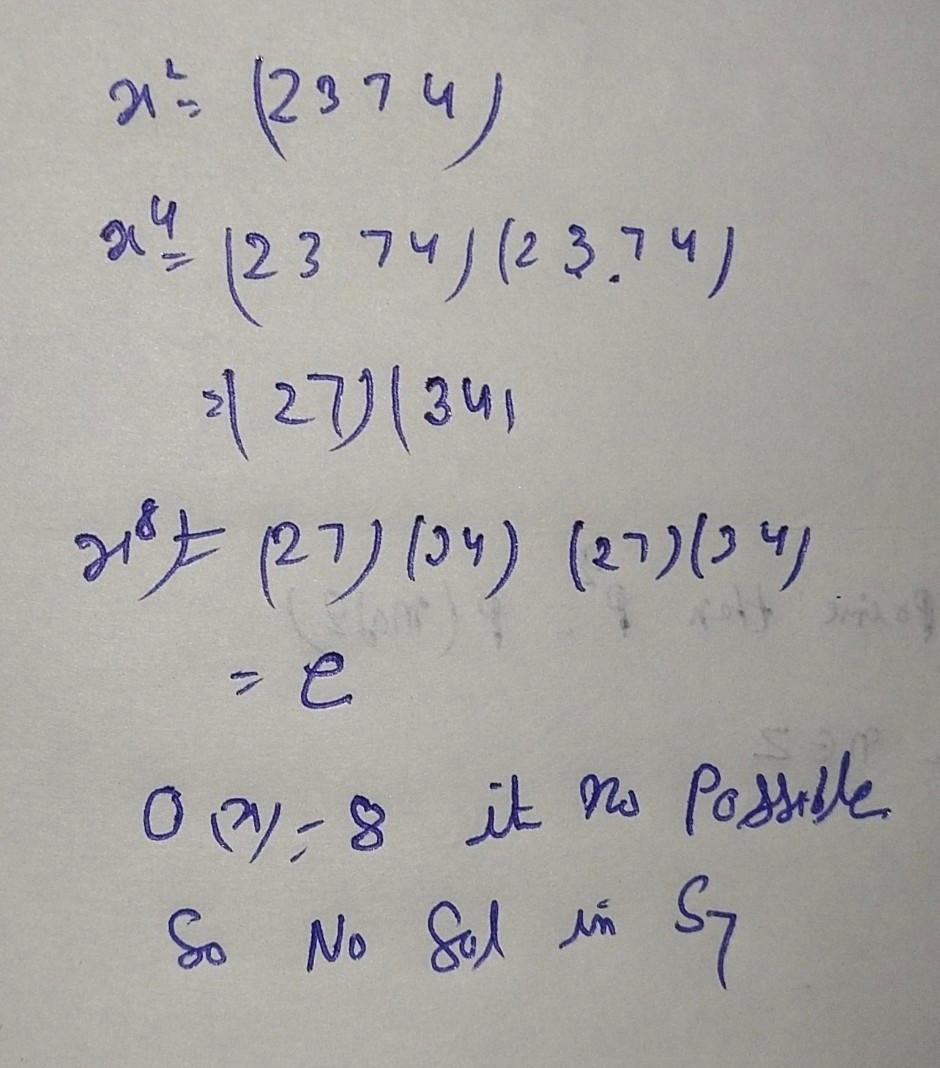 x² = (2374)
x⁴ = (2374)(23.74)
= (27)(34)
x⁸ = (27)(34) (27)(34)
= e
O(x) = 8 it no Possible
So No Sol in S₇